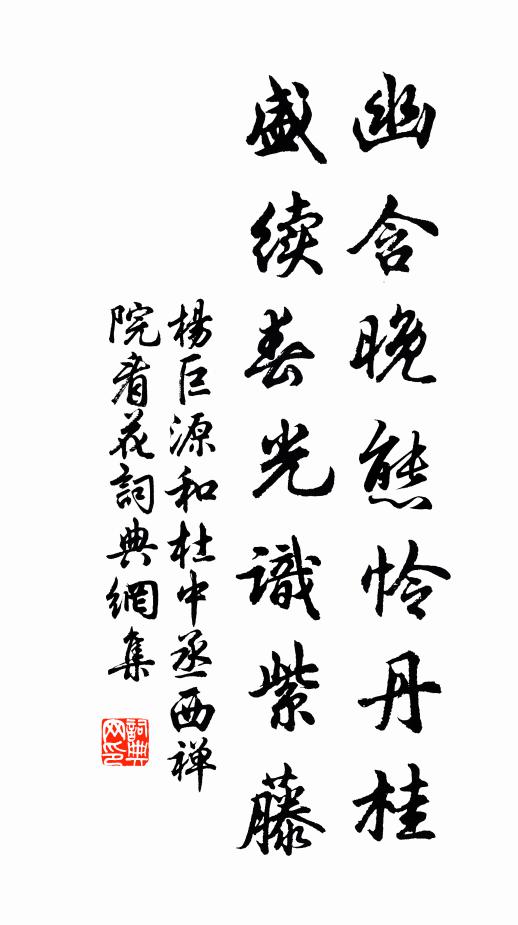 幽含晚態怜丹桂
盛续春光識紫藤
楊巨源和杜中丞西禅
院看花詞典網集
詞典网印